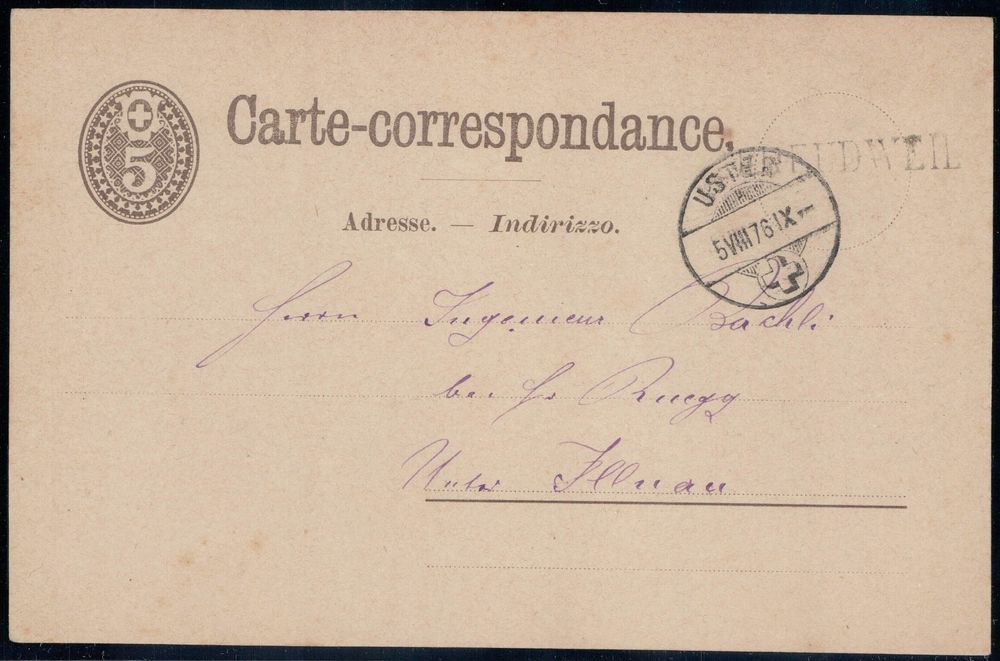 5
Carte-correspondance.
EUDWEIL
USTER
5 VIII 76 IX
Adresse. — Indirizzo.
Herrn Ingenieur Bachli
bei Hr Ruegg
Unter Illnau